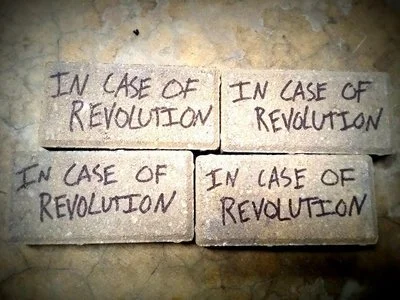 IN CASE OF
REVOLUTION
IN CASE OF
REVOLUTION
IN CASE OF
REVOLUTION
IN CASE OF
REVOLUTION